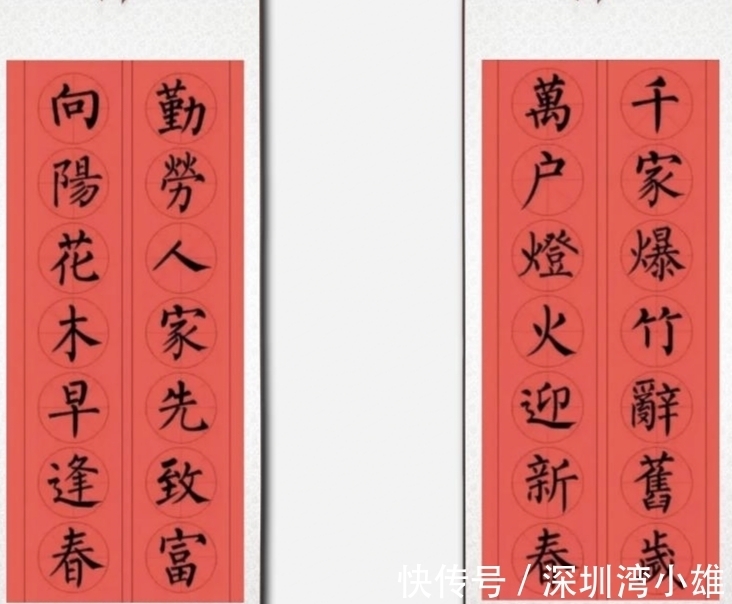 千家爆竹辭舊歲
萬户燈火迎新春
勤勞人家先致富
向陽花木早逢春
快传号 / 深圳湾小雄